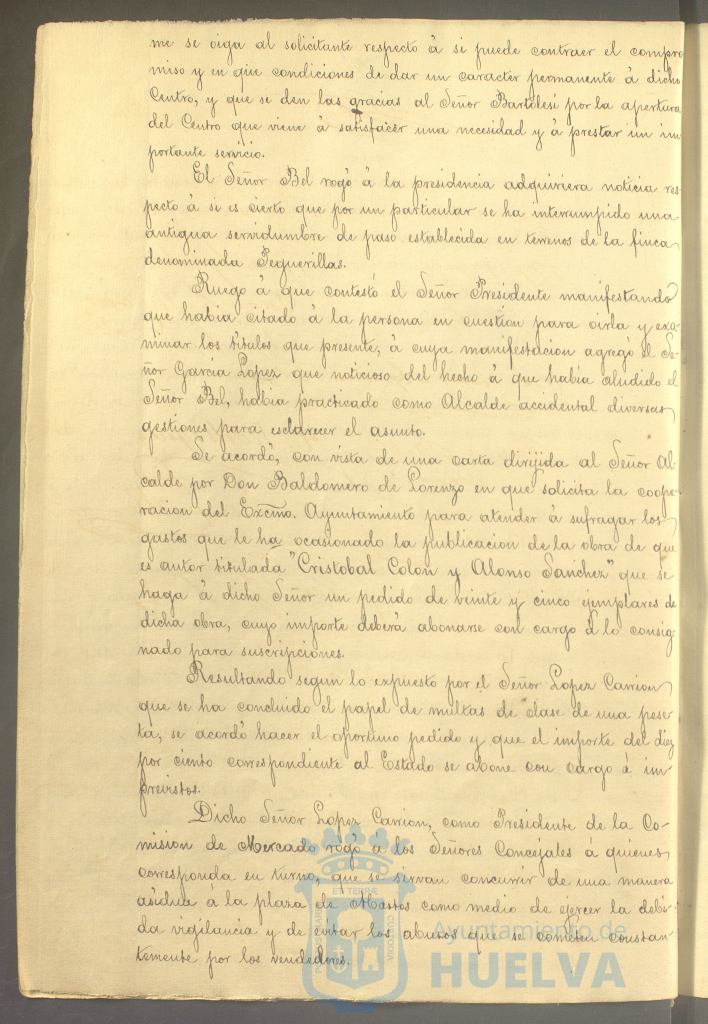 me se oiga al solicitante respecto á si puede contraer el compro
miso y en que condiciones de dar un caracter permanente á dicho
Centro, y que se den las gracias al Señor Bartolesi por la apertura
del Centro que viene á satisfacer una necesidad y á prestar un im
portante servicio.
El Señor Bel rogó á la presidencia adquiriera noticia res
pecto á si es cierto que por un particular se ha interrumpido una
antigua servidumbre de paso establecida en terrenos de la finca
denominada Peguerillas.
Ruego á que contestó el Señor Presidente manifestando
que habia citado á la persona en cuestion para oirla y exa-
minar los titulos que presente, á cuya manifestacion agregó el Se-
ñor Garcia Lopez que noticioso del hecho á que habia aludido el
Señor Bel, habia practicado como Alcalde accidental diversas
gestiones para esclarecer el asunto.
Se acordó, con vista de una carta dirijida al Señor Al
calde por Don Baldomero de Lorenzo en que solicita la coope-
racion del Excmo. Ayuntamiento para atender á sufragar los
gastos que le ha ocasionado la publicacion de la obra de que
es autor titulada "Cristobal Colon y Alonso Sanchez" que se
haga á dicho Señor un pedido de veinte y cinco ejemplares de
dicha obra, cuyo importe deberá abonarse con cargo á lo consig
nado para suscripciones.
Resultando segun lo expuesto por el Señor Lopez Carrion
que se ha concluido el papel de multas de clase de una pese-
ta, se acordó hacer el oportuno pedido y que el importe del diez
por ciento correspondiente al Estado se abone con cargo á im-
previstos.
Dicho Señor Lopez Carrion, como Presidente de la Co-
mision de Mercado rogó á los Señores Concejales á quienes
corresponda en turno, que se sirvan concurrir de una manera
asidua á la plaza de Abastos como medio de ejercer la debi-
da vigilancia y de evitar los abusos que se cometen constan-
temente por los vendedores.
Ayuntamiento de
HUELVA